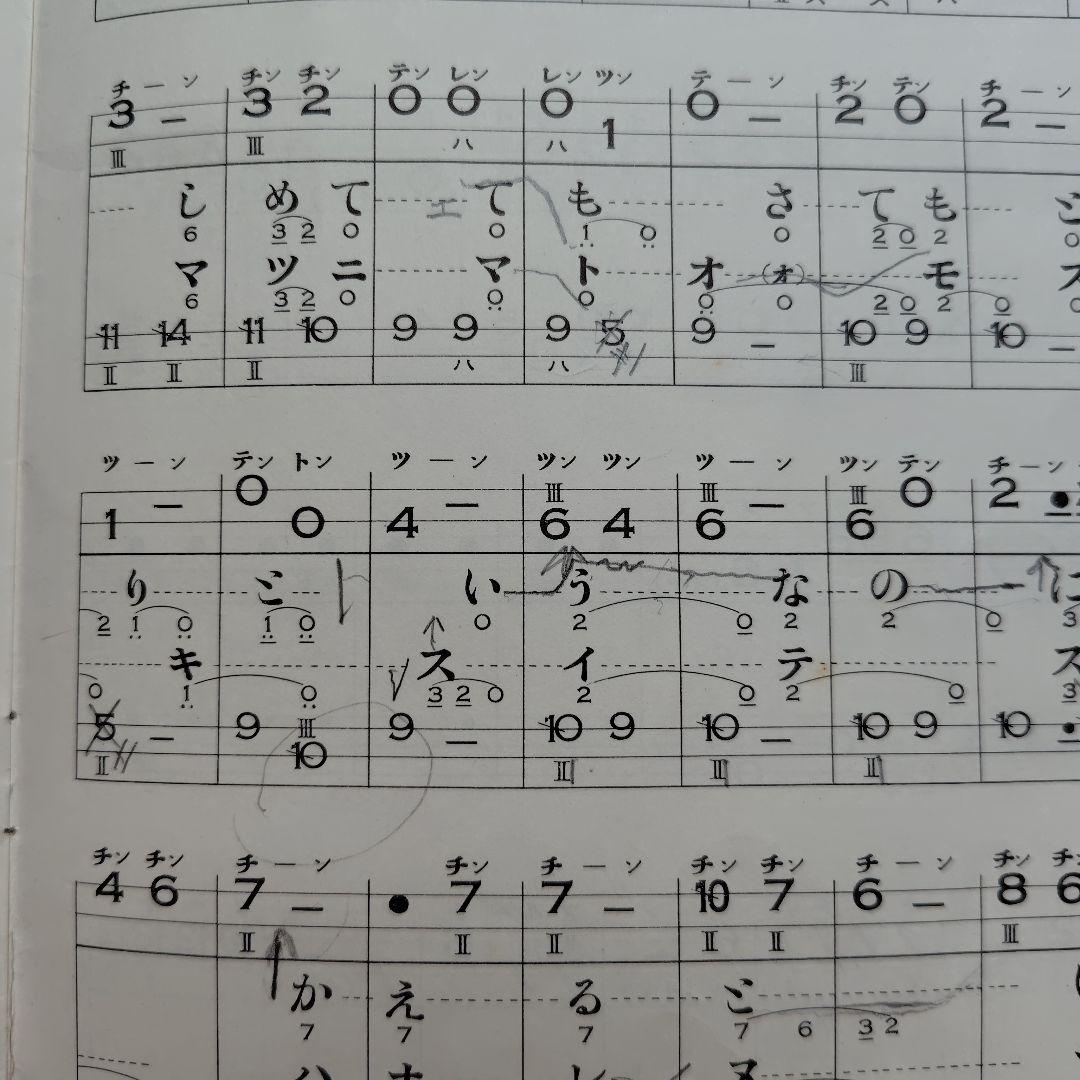 チーン チン チン テン レン レン ツン テーン チン テン チーン
3 — 3 2 0 0 0 1 0 — 2 0 2 —
Ⅲ Ⅲ ハ ハ
し め て て も さ て も
6 3 2 0 0 1 0 0 2 0 2 0
マ ツ ニ マ ト オ (オ) モ ス
6 3 2 0 0 0 0 0 2 0 2 0
11 14 11 10 9 9 9 5 9 — 10 9 10 —
Ⅱ Ⅱ Ⅱ ハ ハ Ⅲ
ツーン テン トン ツーン ツン ツン ツーン ツン テン チーン
1 — 0 0 4 — Ⅲ 6 4 Ⅲ 6 — Ⅲ 6 0 2 ●
り ご い う な の に
2 1 0 1 0 0 2 0 2 2 0 3
キ ス イ テ ス
0 1 0 3 2 0 2 0 2 0 3
5 — 9 Ⅲ 10 9 — 10 9 10 — 10 9 10
Ⅱ Ⅱ Ⅱ Ⅱ
チン チン チーン チン チーン チン チン チーン チン
4 6 7 — ● 7 7 — 10 7 6 — 8 6
Ⅱ Ⅱ Ⅱ Ⅱ Ⅱ Ⅲ
か え る ご
7 7 7 7 6 3 2